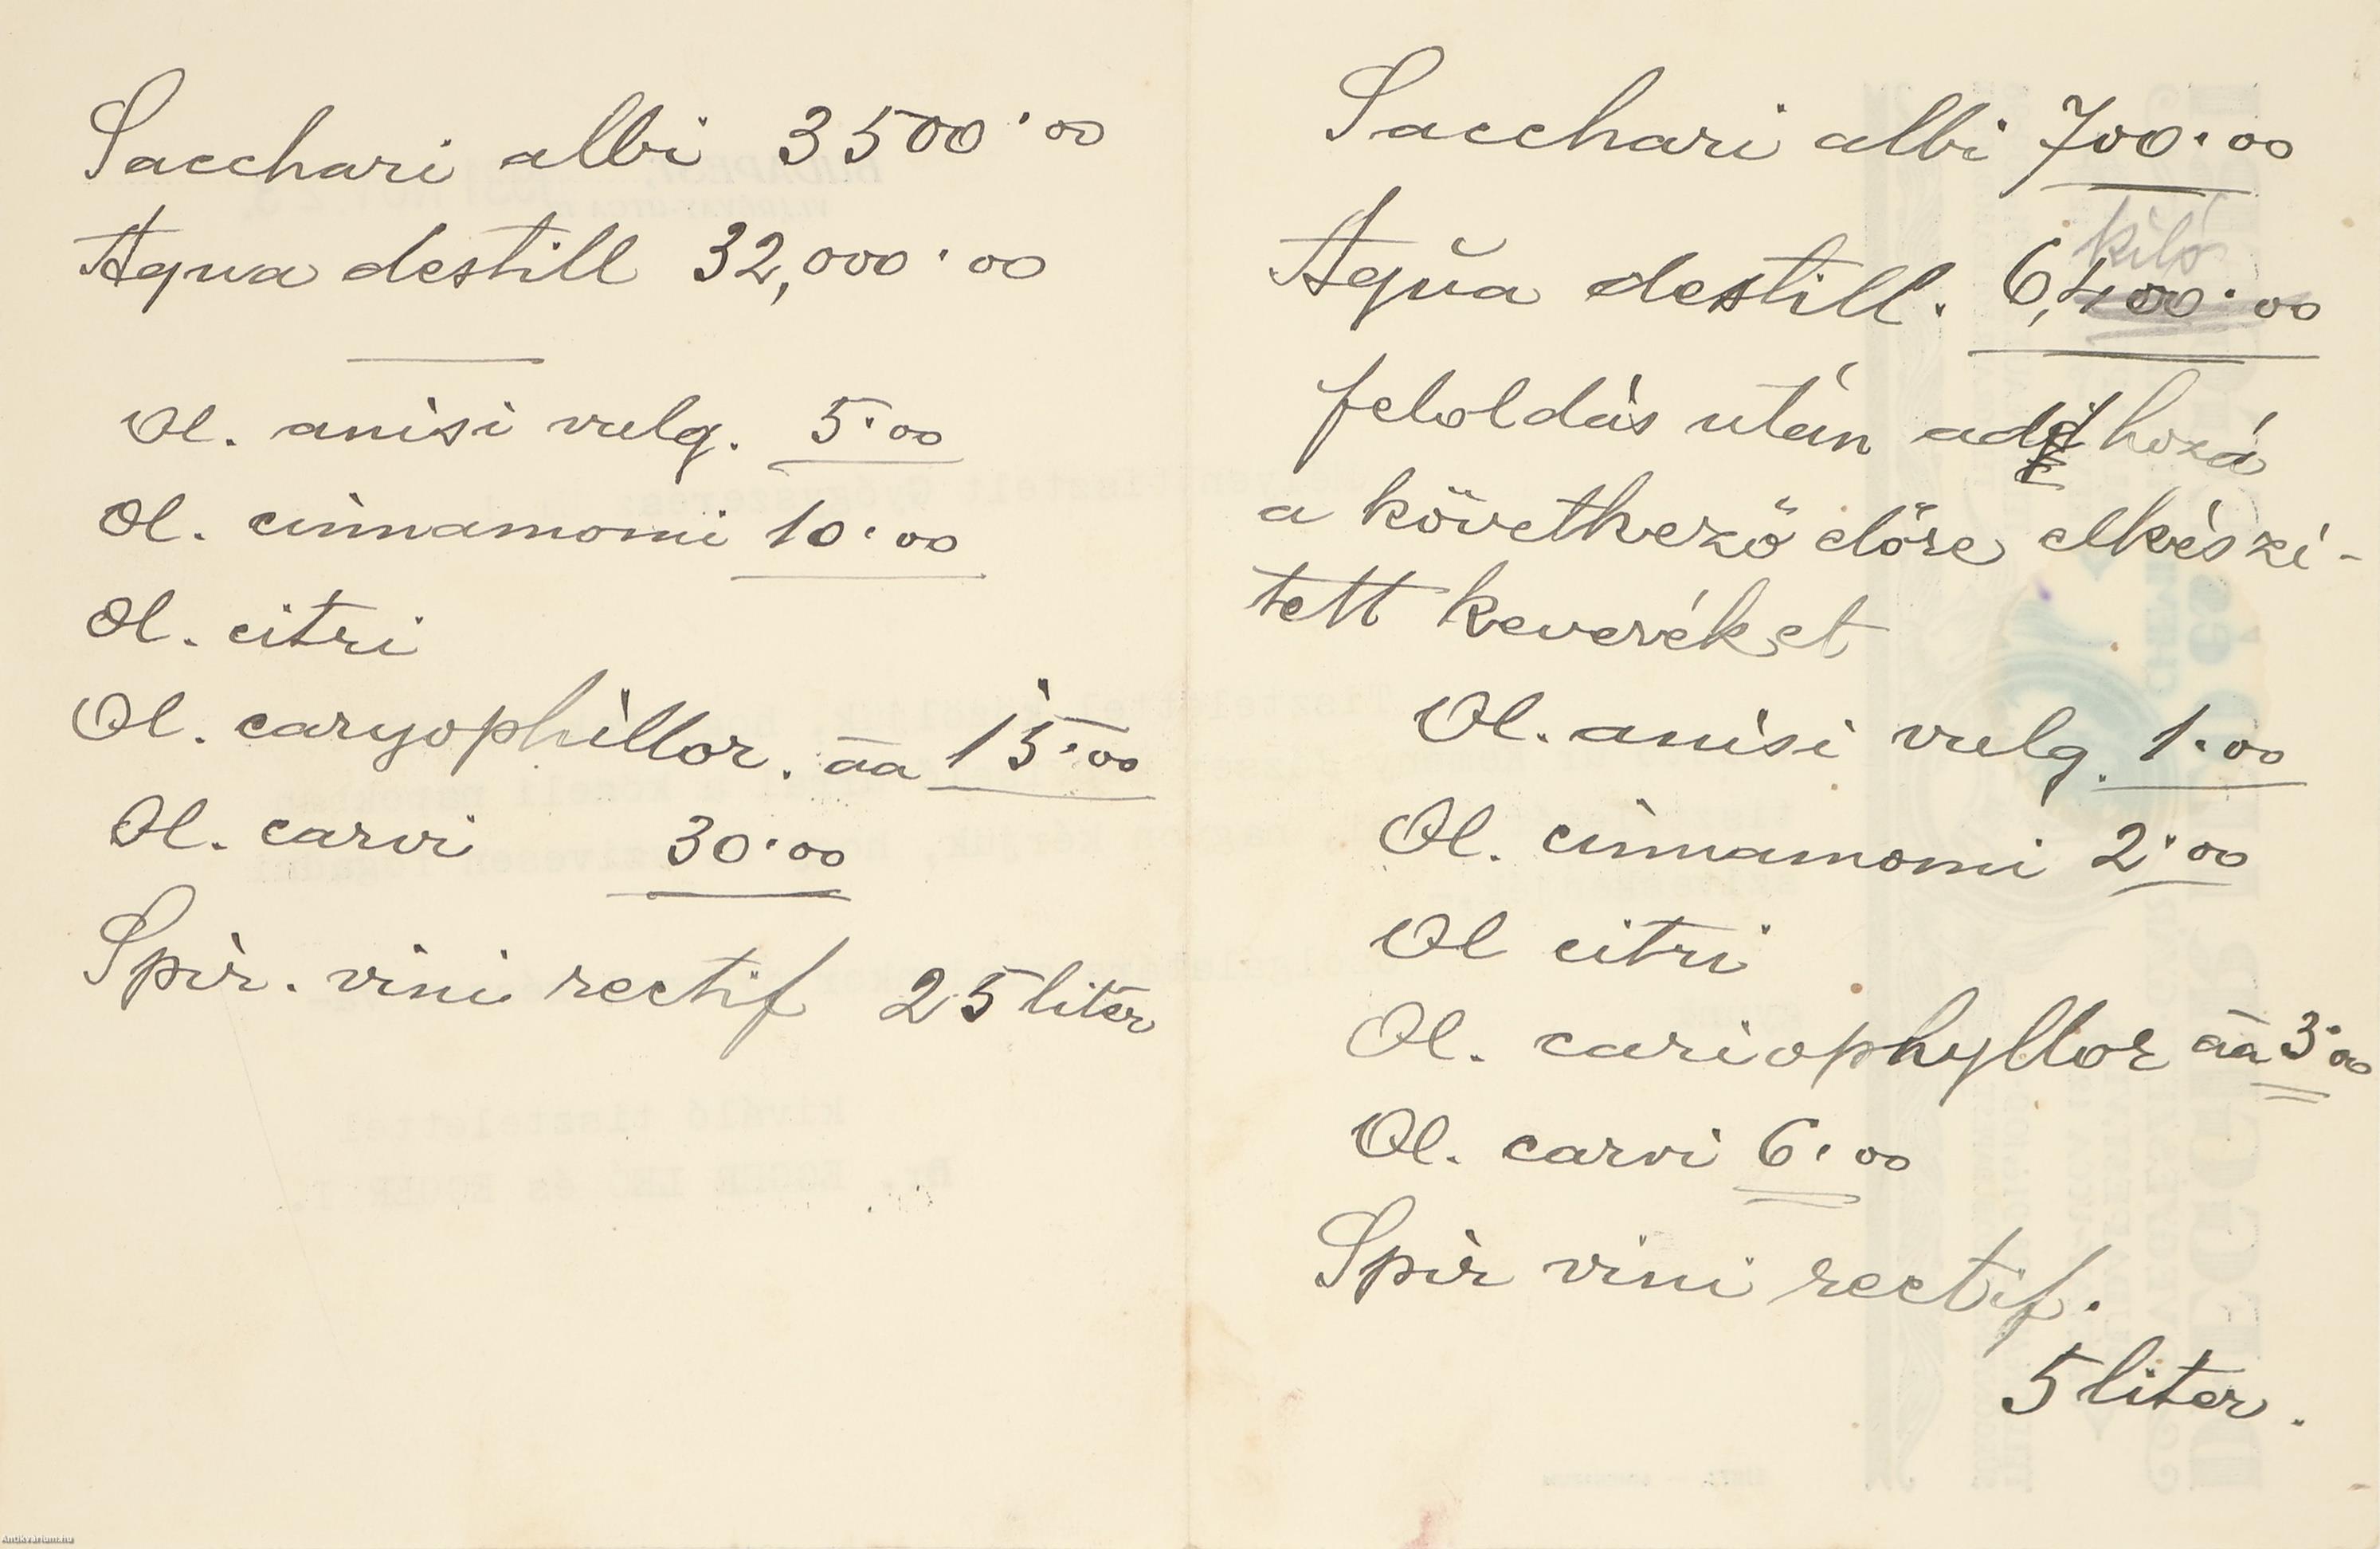 Sacchari albi 3500·00
Aqua destill 32,000·00
Ol. anisi vulg. 5·00
Ol. cinnamomi 10·00
Ol. citri
Ol. caryophillor. āa 15·00
Ol. carvi 30·00
Spir. vini rectif 25 liter
Sacchari albi 700·00
kiló
Aqŭa destill. 6,400·00
feloldás után add hozá
a következő előre elkészí-
tett keveréket
Ol. anisi vulg. 1·00
Ol. cinnamomi 2·00
Ol citri
Ol. cariophyllor āa 3·00
Ol. carvi 6·00
Spir vini rectif.
5 liter.
Antikvárium.hu